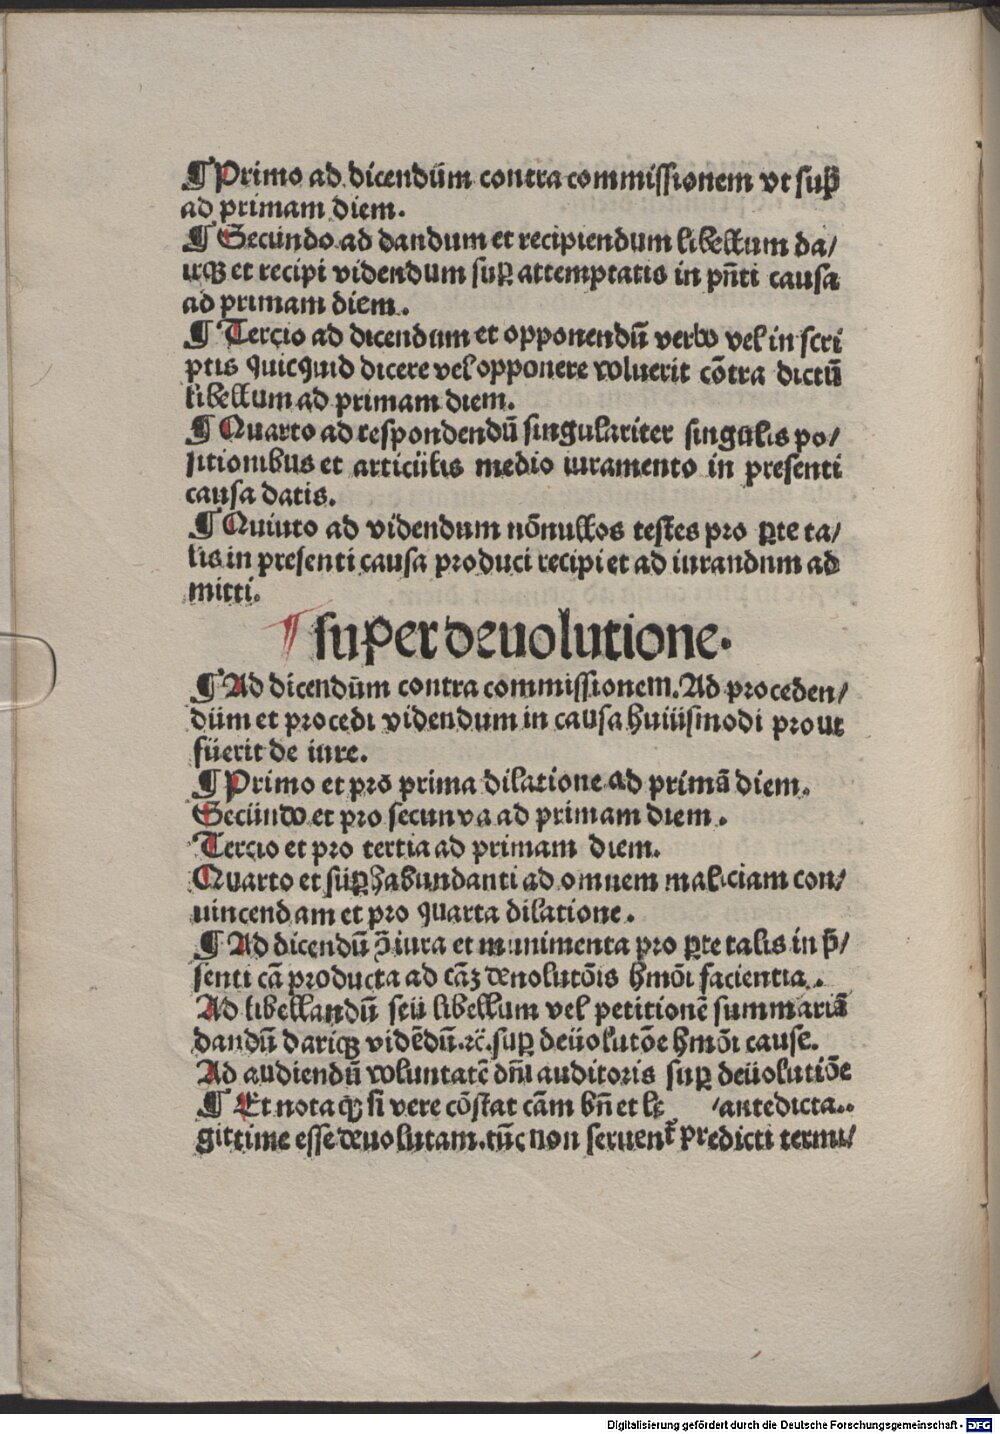 ¶ Primo ad dicendūm contra commissionem vt suꝑ
ad primam diem.
¶ Secundo ad dandum et recipiendum libellum da/
riqꝫ et recipi videndum suꝑ attemptatis in pn̄ti causa
ad primam diem.
¶ Tercio ad dicendum et opponendū verbo vel in scri
ptis quicquid dicere vel opponere voluerit cōtra dictū
libellum ad primam diem.
¶ Quarto ad respondendū singulariter singulis po/
sitionibus et articülis medio iuramento in presenti
causa datis.
¶ Quiuto ad videndum nōnullos testes pro ꝑte ta/
lis in presenti causa produci recipi et ad iurandum ad
mitti.
¶ super deuolutione.
¶ Ad dicendūm contra commissionem. Ad proceden/
düm et procedi videndum in causa huiüsmodi prout
füerit de iure.
¶ Primo et pro prima dilatione ad primā diem.
Secündo et pro secunva ad primam diem.
Tercio et pro tertia ad primam diem.
Quarto et süꝑhabundanti ad omnem maliciam con/
uincendam et pro quarta dilatione.
¶ Ad dicendū ꝯ̄ iura et munimenta pro ꝑte talis in p̄/
senti cā producta ad cāꝫ deuolutōis hmōi facientia.
Ad libellandū seü libellum vel petitionē summariā
dandū dariqꝫ vidēdū.ꝛc̄. suꝑ deüolutōe hmōi cause.
Ad audiendū voluntatē dn̄i auditoris suꝑ deüolutiōe
¶ Et nota qꝫ si vere cōstat cām bn̄ et le /antedicta..
gittime esse deuolutam. tūc non seruent᷑ predicti termi/
Digitalisierung gefördert durch die Deutsche Forschungsgemeinschaft - DFG